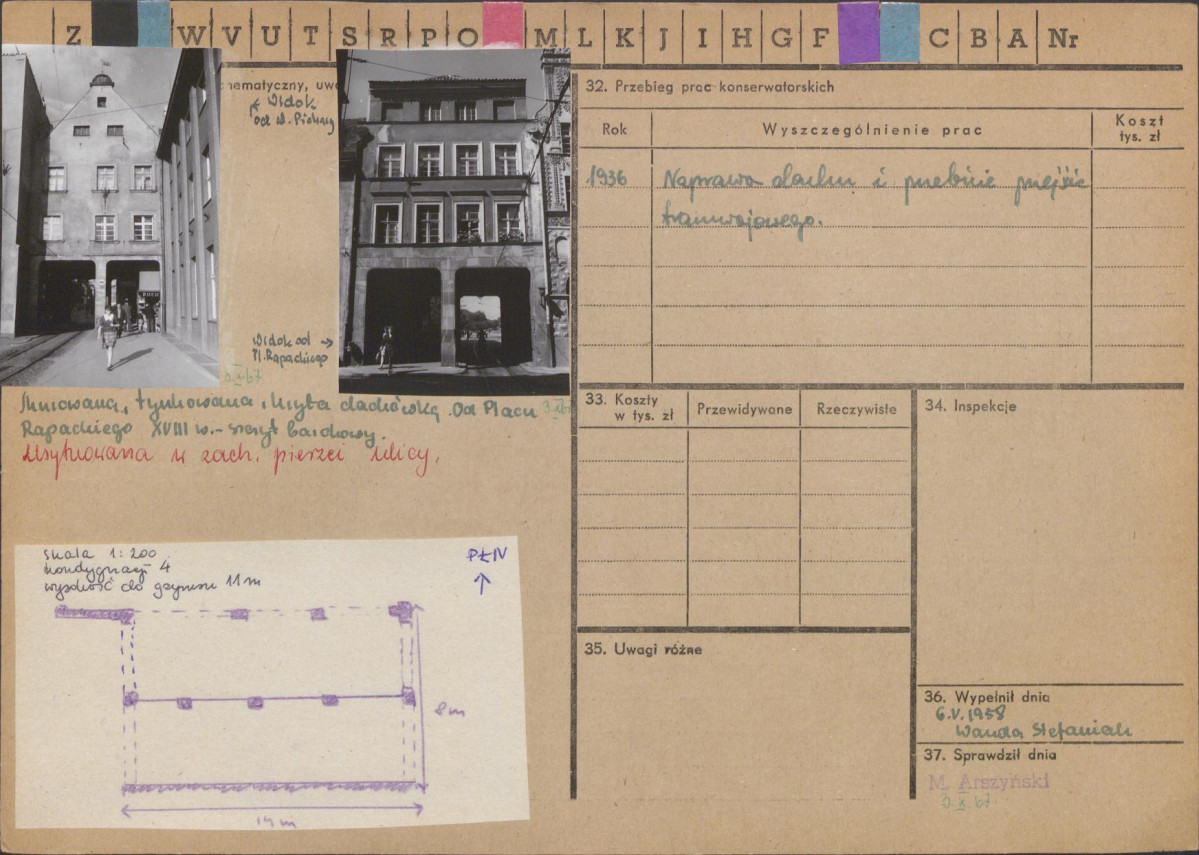 Z W V U T S R P O M L K J I H G F C B A Nr
hematyczny, uwa
Widok
od
Widok od →
Pl. Rapackiego
3.X.67
Murowana, tynkowana, kryta dachówką. Od Placu
Rapackiego XVIII w. - szczyt barokowy.
Usytuowana w zach. pierzei ulicy.
skala 1:200
kondygnacji 4
wysokość do gzymsu 11 m
PŁN
8 m
14 m
32. Przebieg prac konserwatorskich
Rok Wyszczególnienie prac Koszt tys. zł
1936 Naprawa dachu i przebicie przejścia
tramwajowego.
33. Koszty w tys. zł Przewidywane Rzeczywiste
34. Inspekcje
35. Uwagi różne
36. Wypełnił dnia
6.V.1958
Wanda Stefaniak
37. Sprawdził dnia
M. Arszyński
3.X.67